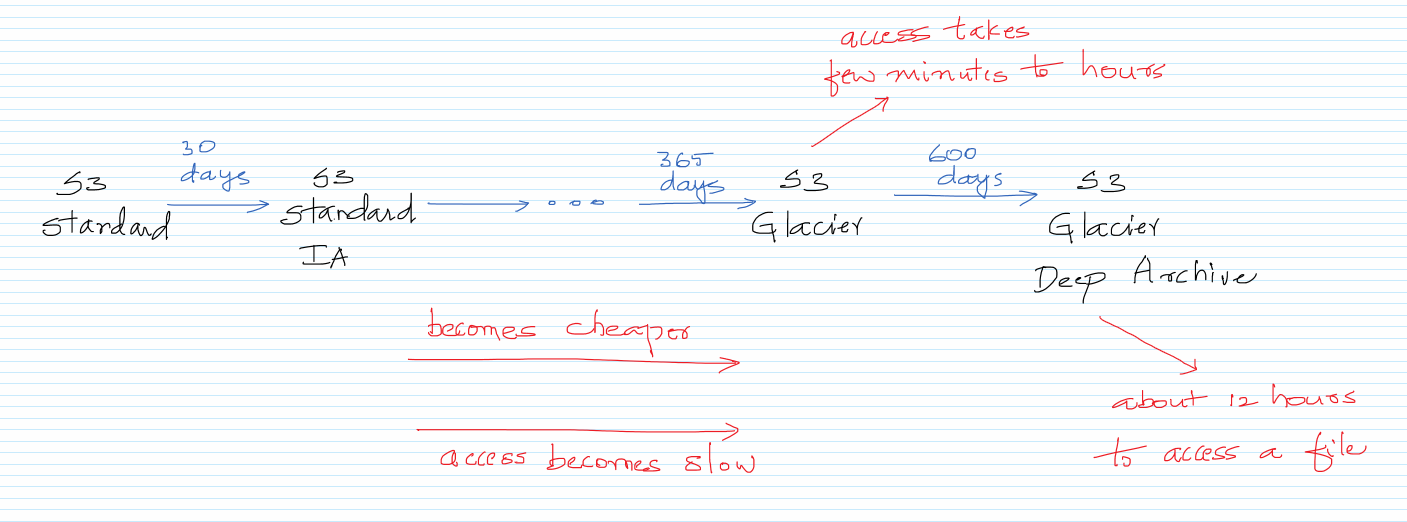 access takes
few minutes to hours
30
days
365
days
600
days
S3
Standard
S3
Standard
IA
S3
Glacier
S3
Glacier
Deep Archive
becomes cheaper
access becomes slow
about 12 hours
to access a file